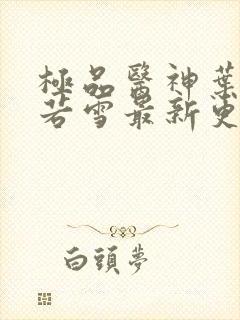 極品醫神葉
若雪最新更
白頭夢